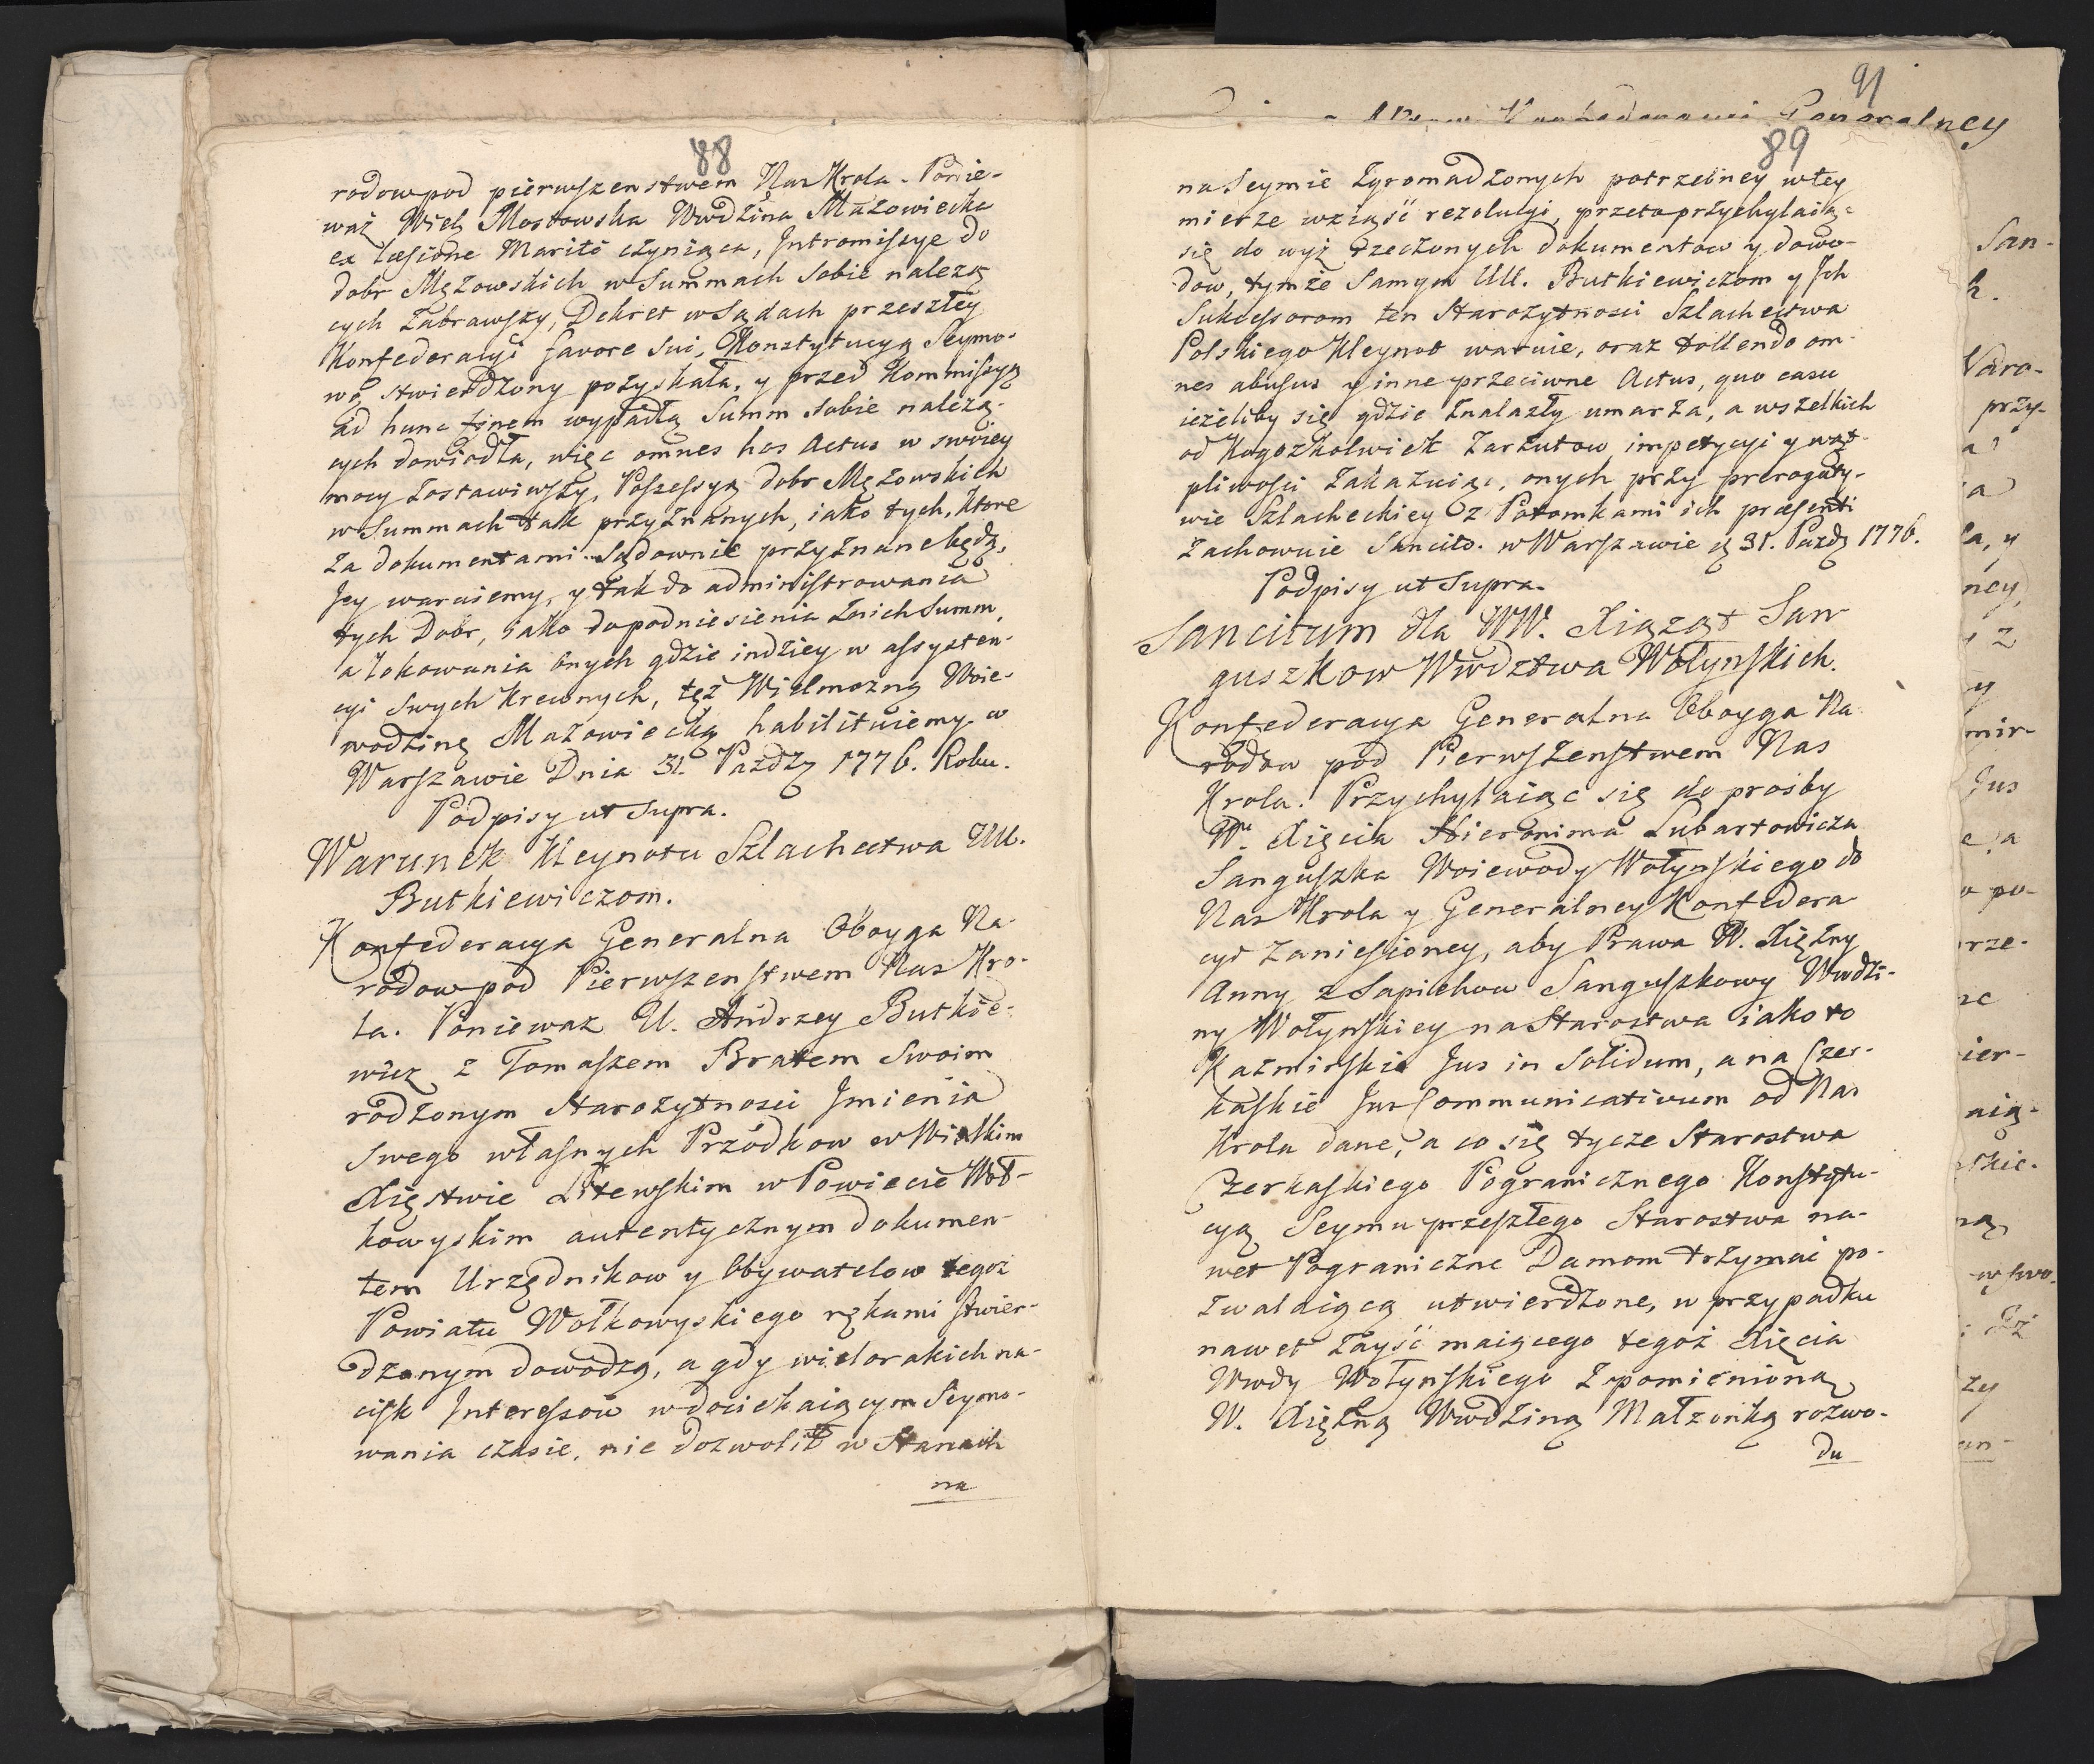 88
rodow pod pierwszenstwem Nas Krola. Ponie-
waż Wielż Mostowska Wwdzina Mazowiecka
ex Cessione Mariti czyniąca, Intromissye do
dobr Mężowskich w Summach sobie należą
cych zabrawszy, Dekret w Sądach przeszłey
Konfederacyi favore sui, Konstytucyą Seymo-
wą stwierdzony pozyskała, y przed Kommissyą
ad hunc finem wypadłą Summ sobie należą-
cych dowiodła, więc omnes hos Actus w swoiey
mocy zostawiwszy, Possessyą dobr Mężowskich
w Summach tak przyznanych, iako tych, ktore
za dokumentami Sądownie przyznane będą,
Jey waruiemy, y tak do administrowania
tych Dobr, iako do podniesienia znich Summ,
a lokowania onych gdzie indziey w assysten-
cyi swych Krewnych, tęż Wielmożną Woie-
wodzinę Mazowiecką habilituiemy. w
Warszawie Dnia 31. Paźdź 1776. Roku.
Podpisy ut supra.
Warunek Kleynotu Szlachectwa UU.
Butkiewiczom.
Konfederacya Generalna Oboyga Na-
rodow pod Pierwszenstwem Nas Kro-
la. Ponieważ U. Andrzey Butkie-
wicz z Tomaszem Bratem Swoim
rodzonym Starożytnosci Jmienia
swego własnych Przódkow w Wielkim
Xięstwie Litewskim w Powiecie Woł-
kowyskim autentycznym dokumen-
tem Urzędnikow y Obywatelow tegoż
Powiatu Wołkowyskiego rękami stwier-
dzonym dowodzą, a gdy wielorakich na-
cisk Interessow w dociekaiącym Seymo-
wania czasie, nie dozwolił w Stanach
na
91
Generalney
89
na Seymie zgromadzonych potrzebney w tey
mierze wziąść rezolucyi, przeto przychylaią-
się do wyż rzeczonych dokumentow y dowo-
dow, tymże samym UU. Butkiewiczom y Jch
Sukcessorom ten Starożytnosci Szlachectwa
Polskiego Kleynot waruie, oraz tollendo om-
nes abusus y inne przeciwne Actus, quo casu
ieżeliby się gdzie znalazły umarza, a wszelkich
od Kogożkolwiek zarzutow, impetycyi y wąt-
pliwosci zakazuiąc, onych przy prerogaty-
wie Szlacheckiey z Potomkami ich præsenti
zachowuie Sancito. w Warszawie d 31. Paźdź 1776.
Podpisy ut Supra.
Sancitum dla WW. Xiążąt San-
guszkow Wwdztwa Wołynskich.
Konfederacya Generalna Oboyga Na-
rodow pod Pierwszenstwem Nas
Krola. Przychylaiąc się do prosby
W. Xięcia Hieronima Lubartowicza
Sanguszka Woiewody Wołynskiego do
Nas Krola y Generalney Konfedera-
cyi zaniesioney, aby Prawa W. Xiężny
Anny z Sapiehow Sanguszkowy Wwdzi-
ny Wołynskiey na Starostwa iako to
Kazmirskie Jus in Solidum, a na Czer-
kaskie Jus Communicativum od Nas
Krola dane, a co się tycze Starostwa
Czerkaskiego Pogranicznego Konstytu-
cyą Seymu przeszłego Starostwa na-
wet Pograniczne Damom trzymać po-
zwalaiącą utwierdzone, w przypadku
nawet zayść maiącego tegoż Xięcia
Wwdy Wołynskiego z pomienioną
W. Xiężną Wwdziną Małżonką rozwo-
du